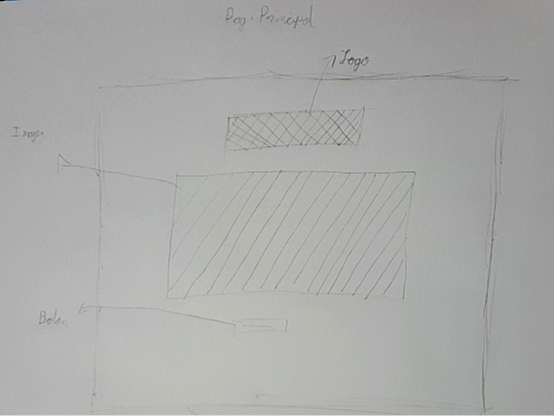 Pag. Principal
Logo
Imagen
Boton